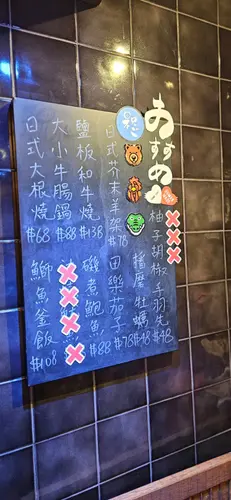 おすすめ
柚子胡椒手羽先 #48
播磨牡蠣 #48
日式芥末羊架 #78
田樂茄子 #78
鹽板和牛燒 #138
磯煮鮑魚 #88
大小牛腸鍋 #88
日式大根燒 #68
鰤魚釜飯 #108